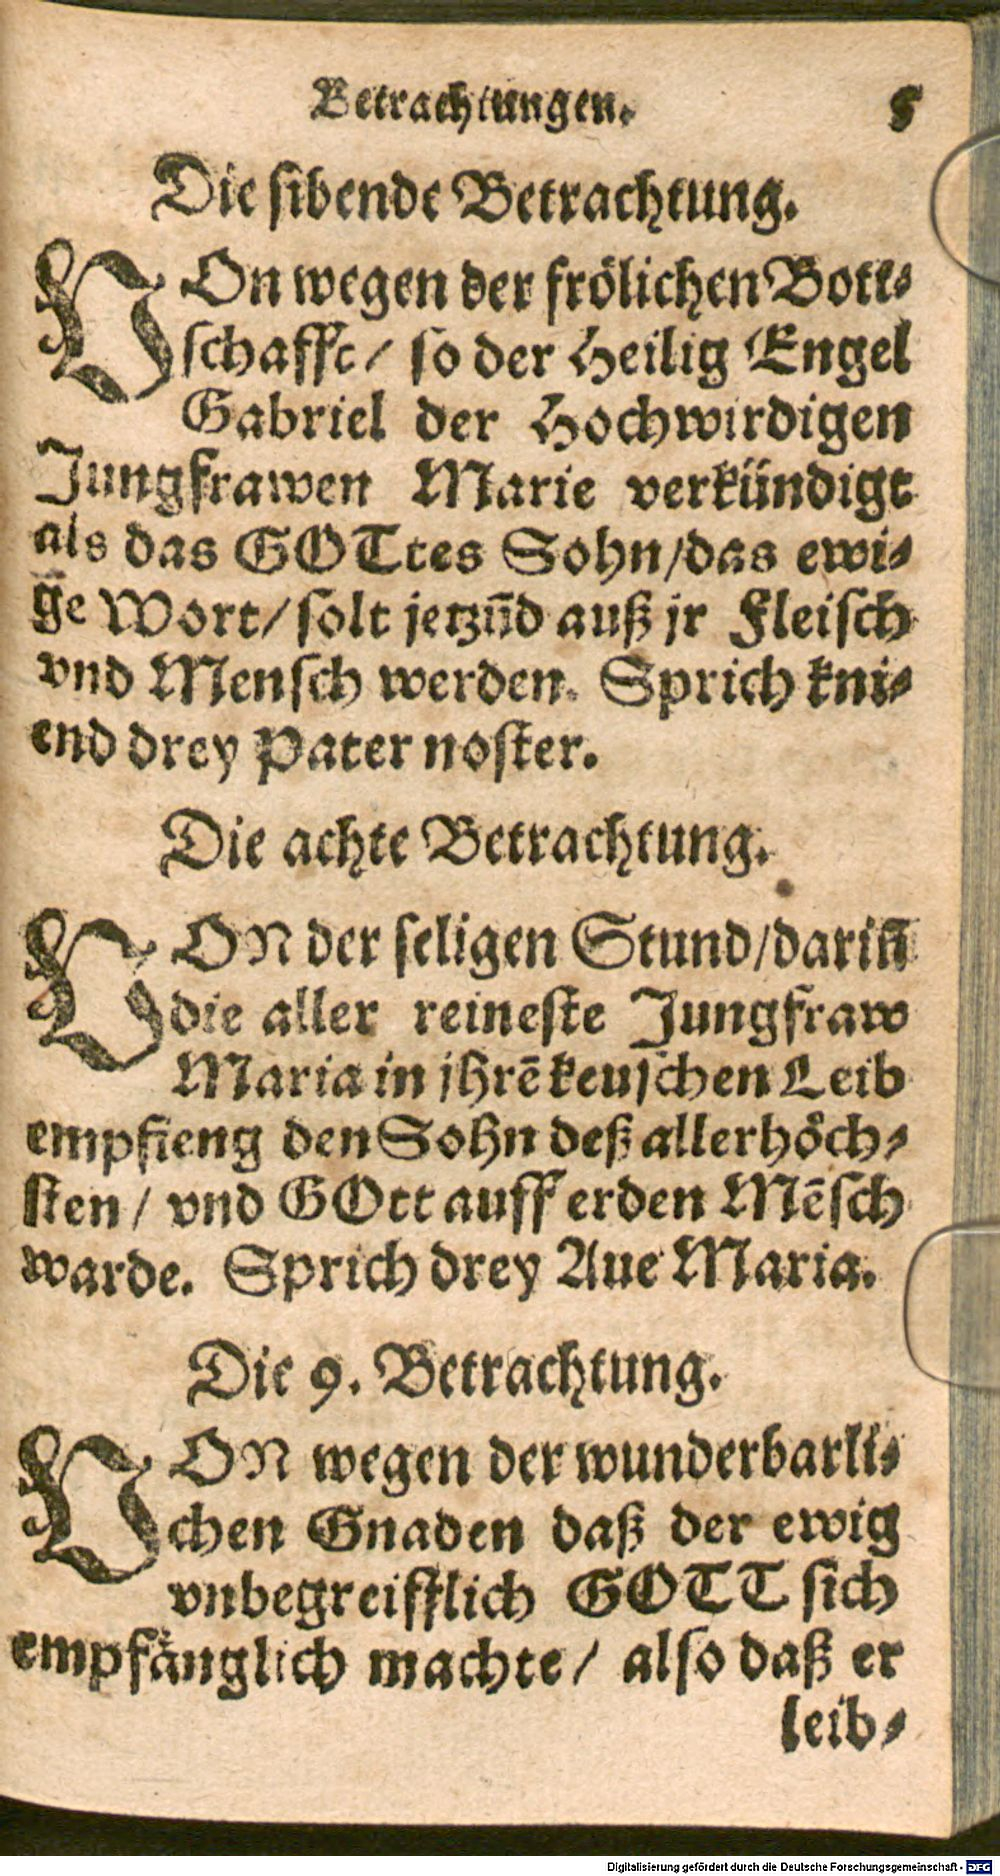 Betrachtungen. 5
Die sibende Betrachtung.
VOn wegen der frölichen Bott-
schafft/ so der Heilig Engel
Gabriel der Hochwirdigen
Jungfrawen Marie verkündigt
als das GOTtes Sohn/das ewi-
ge Wort/ solt jetzūd auß jr Fleisch
vnd Mensch werden. Sprich kni-
end drey Pater noster.
Die achte Betrachtung.
VON der seligen Stund/darin̄
die aller reineste Jungfraw
Maria in jhrē keuschen Leib
empfieng den Sohn deß allerhöch-
sten/ vnd GOtt auff erden Mēsch
warde. Sprich drey Aue Maria.
Die 9. Betrachtung.
VON wegen der wunderbarli-
chen Gnaden daß der ewig
vnbegreifflich GOTT sich
empfänglich machte/ also daß er
leib-
Digitalisierung gefördert durch die Deutsche Forschungsgemeinschaft - DFG